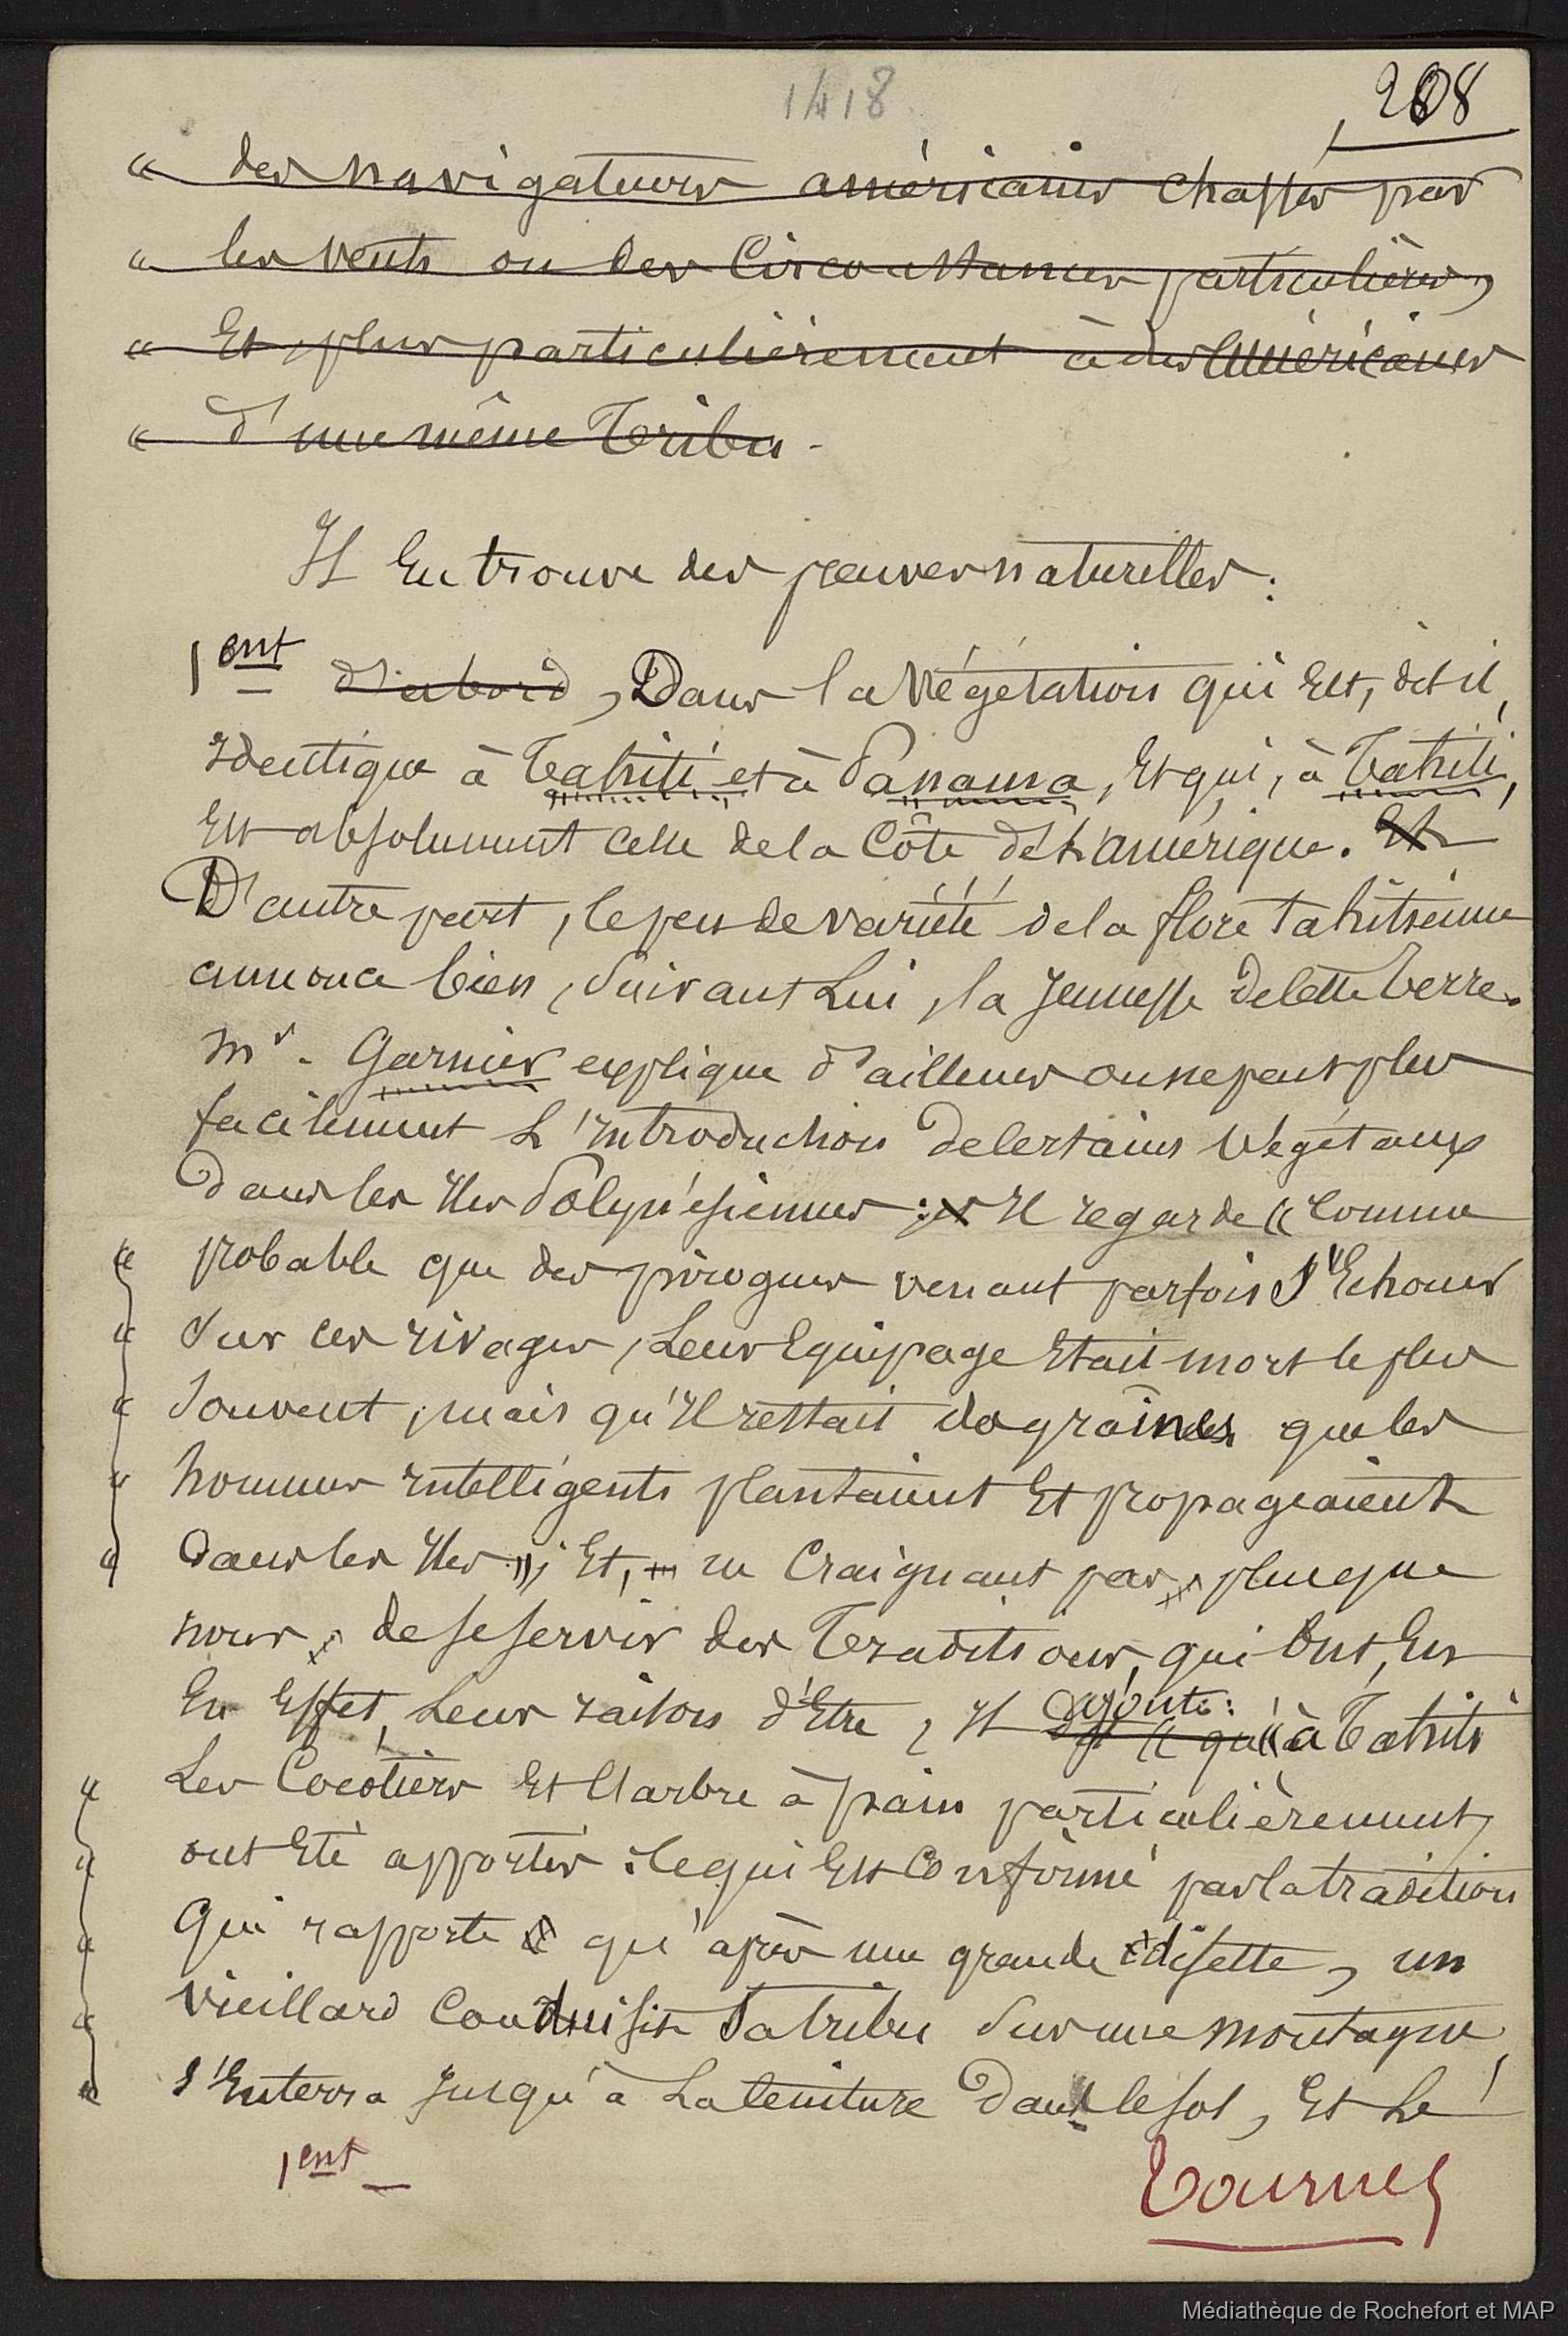 1418
208
« des navigateurs américains chassés par
« les vents ou des Circonstances particulières,
« Et plus particulièrement à des Américains
« d'une même Tribu -
Il En trouve des preuves naturelles :
1ent d'abord, Dans la Végétation qui Est, dit il,
Identique à Tahiti et à Panama, Et qui, à Tahiti,
Est absolument celle de la Côte de L'amérique. Et
D'autre part, le peu de variété de la flore Tahitienne
annonce bien, suivant Lui, la Jeunesse de Cette Terre.
Mr. Garnier explique d'ailleurs on ne peut plus
facilement L'Introduction de Certains Végétaux
dans les Iles Polynésiennes : et Il regarde « Comme
« probable que des pirogues venant parfois s'Echouer
« sur ces rivages, Leur Equipage Etait mort le plus
« souvent, mais qu'Il restait des graines que les
« hommes Intelligents plantaient Et propageaient
« dans les Iles » ; Et, ne Craignant pas, plus que
nous, de se servir des Traditions, qui Ont, En
En Effet, Leur raison d'Etre, Il ajoute : dit « qu' « à Tahiti
« Les Cocotiers Et L'arbre à pain particulièrement,
« ont Eté apportés : Ce qui Est Confirmé par la tradition
« Qui rapporte qu'après une grande disette, un
« vieillard Conduisit Sa tribu sur une montagne,
« s'Enterra Jusqu'à La Ceinture Dans le sol, Et Le
1ent
Tournez
Médiathèque de Rochefort et MAP